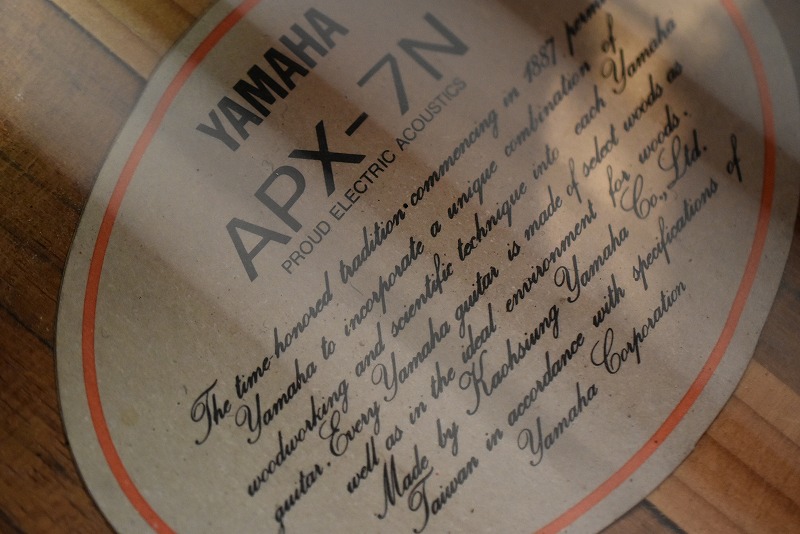 YAMAHA
APX-7N
PROUD ELECTRIC ACOUSTICS
The time-honored tradition commencing in 1887
Yamaha to incorporate a unique combination of
woodworking and scientific technique into each Yamaha
guitar. Every Yamaha guitar is made of select woods as
well as in the ideal environment for woods.
Made by Kaohsiung Yamaha Co., Ltd.
Taiwan in accordance with specifications of
Yamaha Corporation